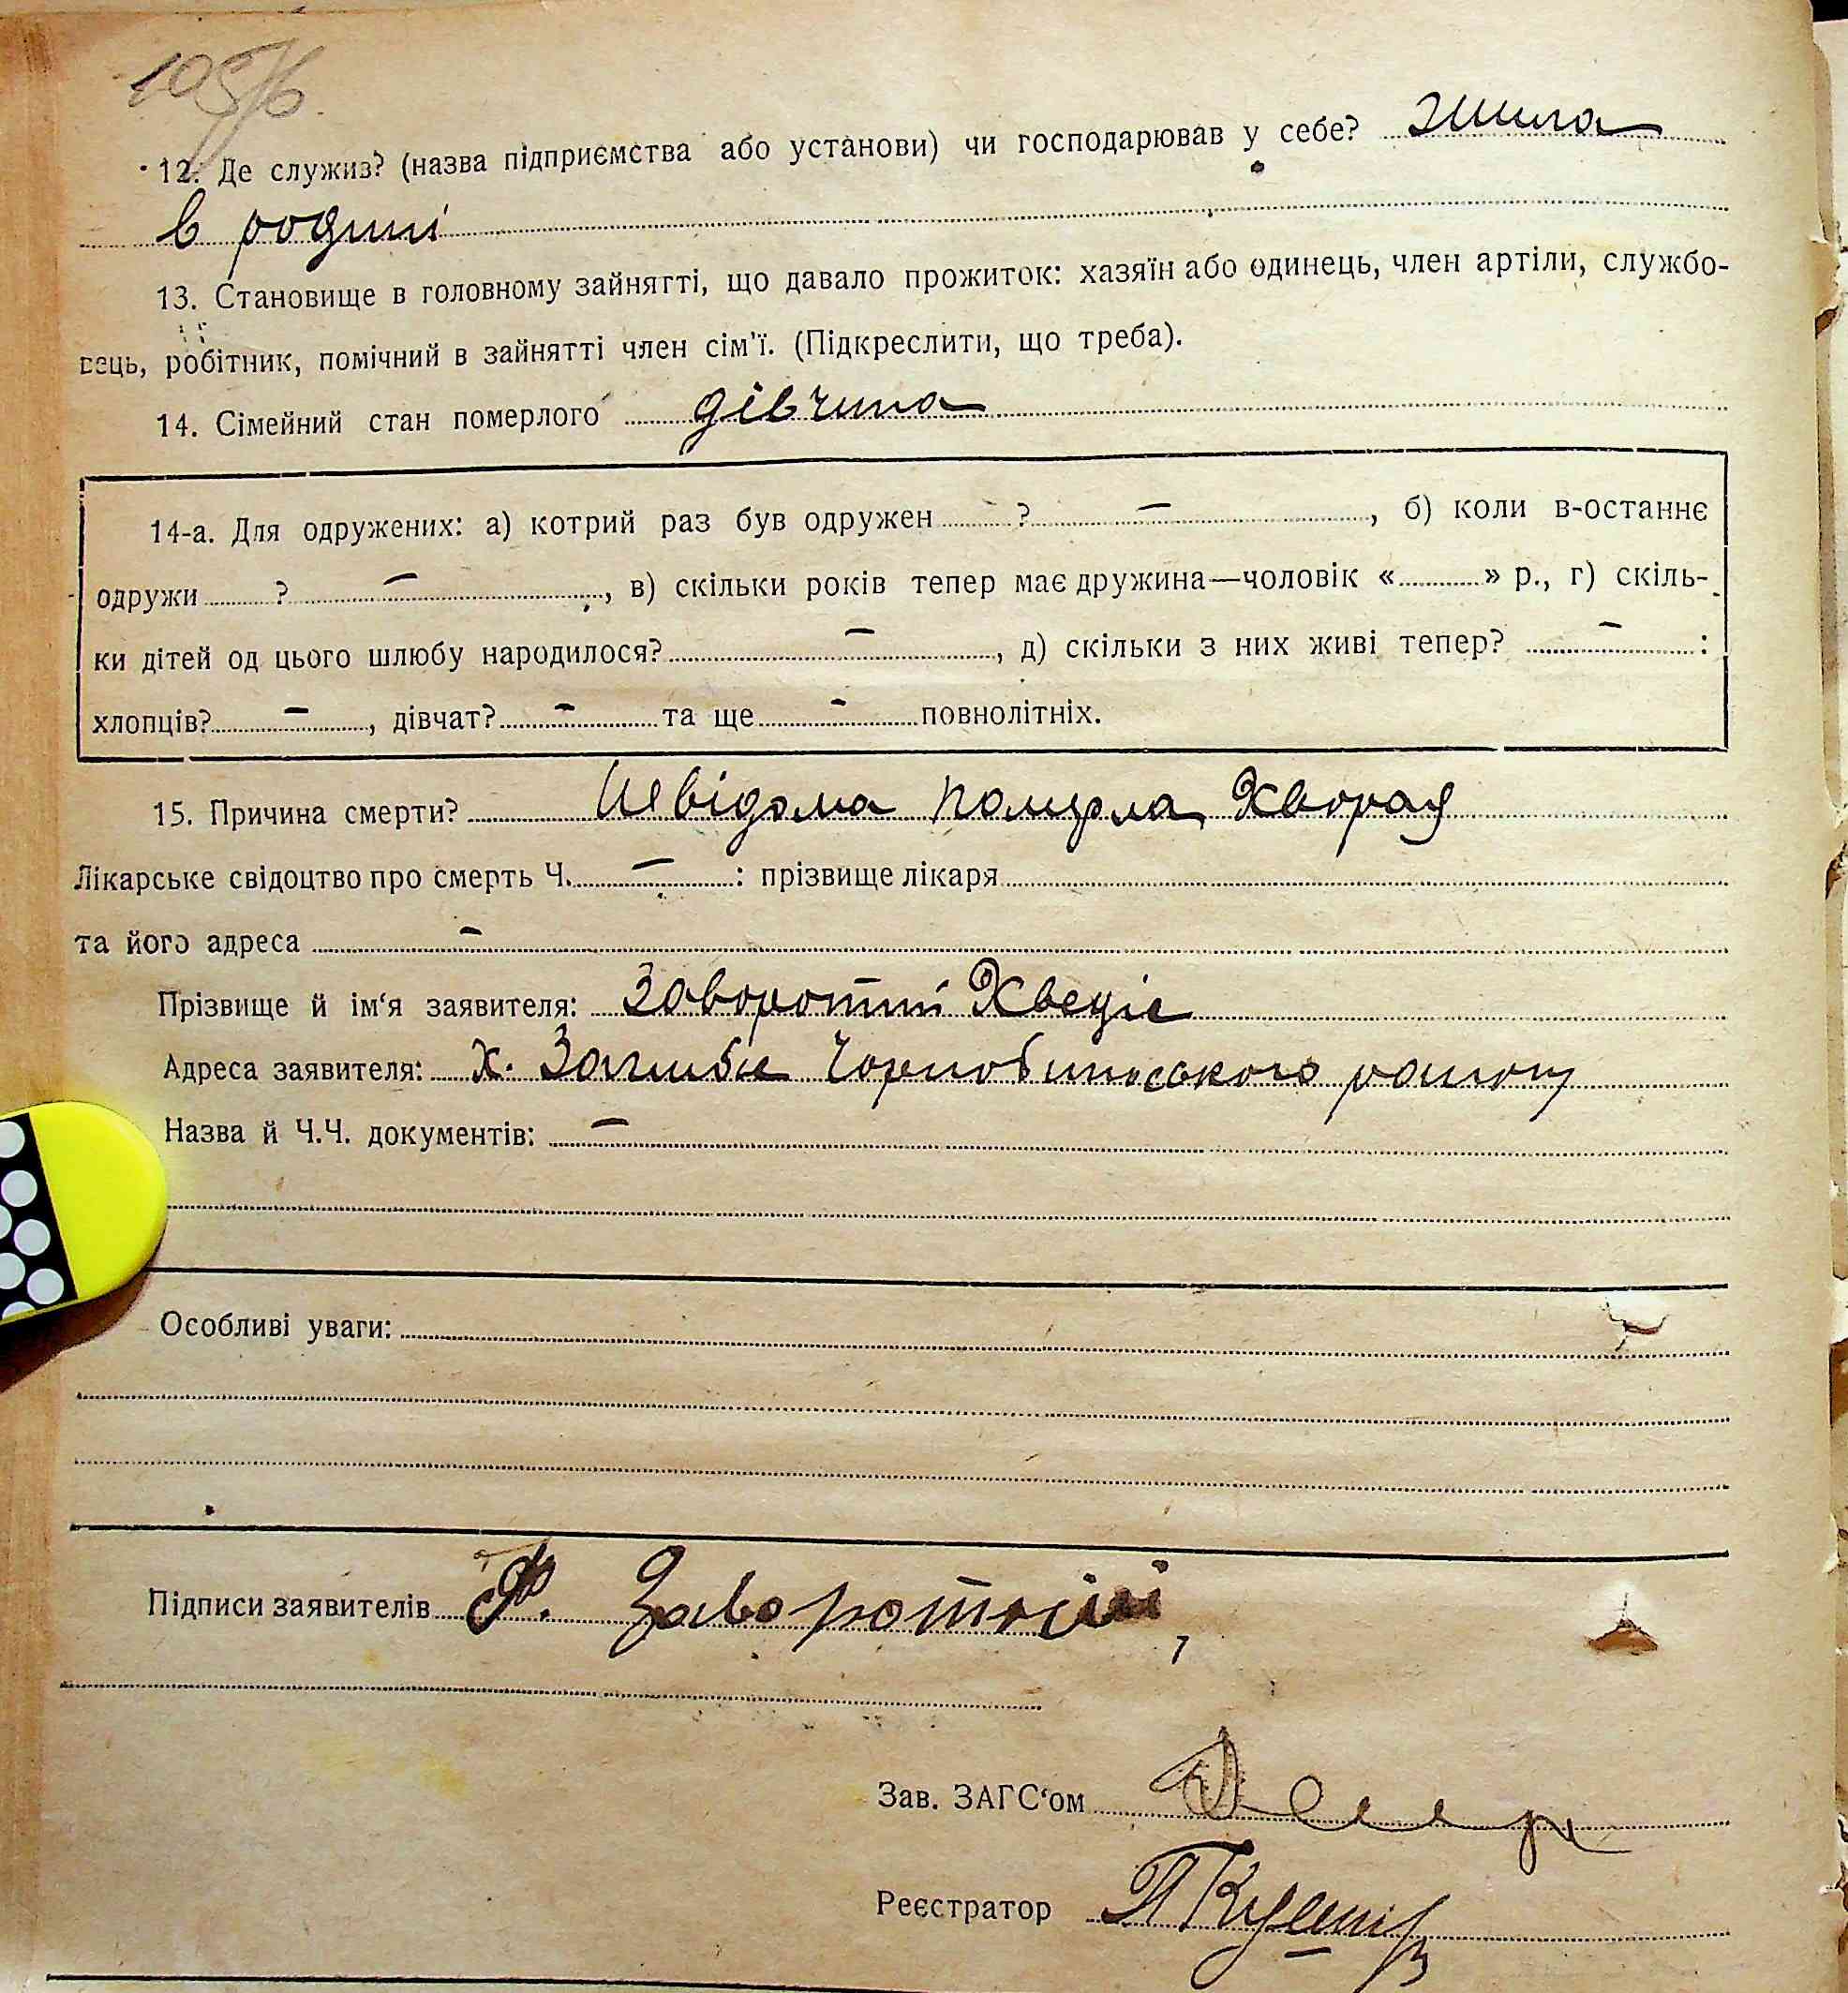 105/6
12. Де служиз? (назва підприємства або установи) чи господарював у себе? жила
в родині
13. Становище в головному зайнятті, що давало прожиток: хазяїн або одинець, член артіли, службо-
вець, робітник, помічний в зайнятті член сім'ї. (Підкреслити, що треба).
14. Сімейний стан померлого дівчина
14-а. Для одружених: а) котрий раз був одружен ? —, б) коли в-останнє
одружи ? —, в) скільки років тепер має дружина—чоловік «» р., г) скіль-
ки дітей од цього шлюбу народилося? —, д) скільки з них живі тепер? — :
хлопців? —, дівчат? — та ще — повнолітніх.
15. Причина смерти? Невідома померла
Лікарське свідоцтво про смерть Ч. — : прізвище лікаря
та його адреса —
Прізвище й ім'я заявителя: Заворотній Хведіс
Адреса заявителя: х. Чорнобильського району
Назва й Ч.Ч. документів: —
Особливі уваги:
Підписи заявителів Ф. Заворотній
Зав. ЗАГС'ом
Реєстратор